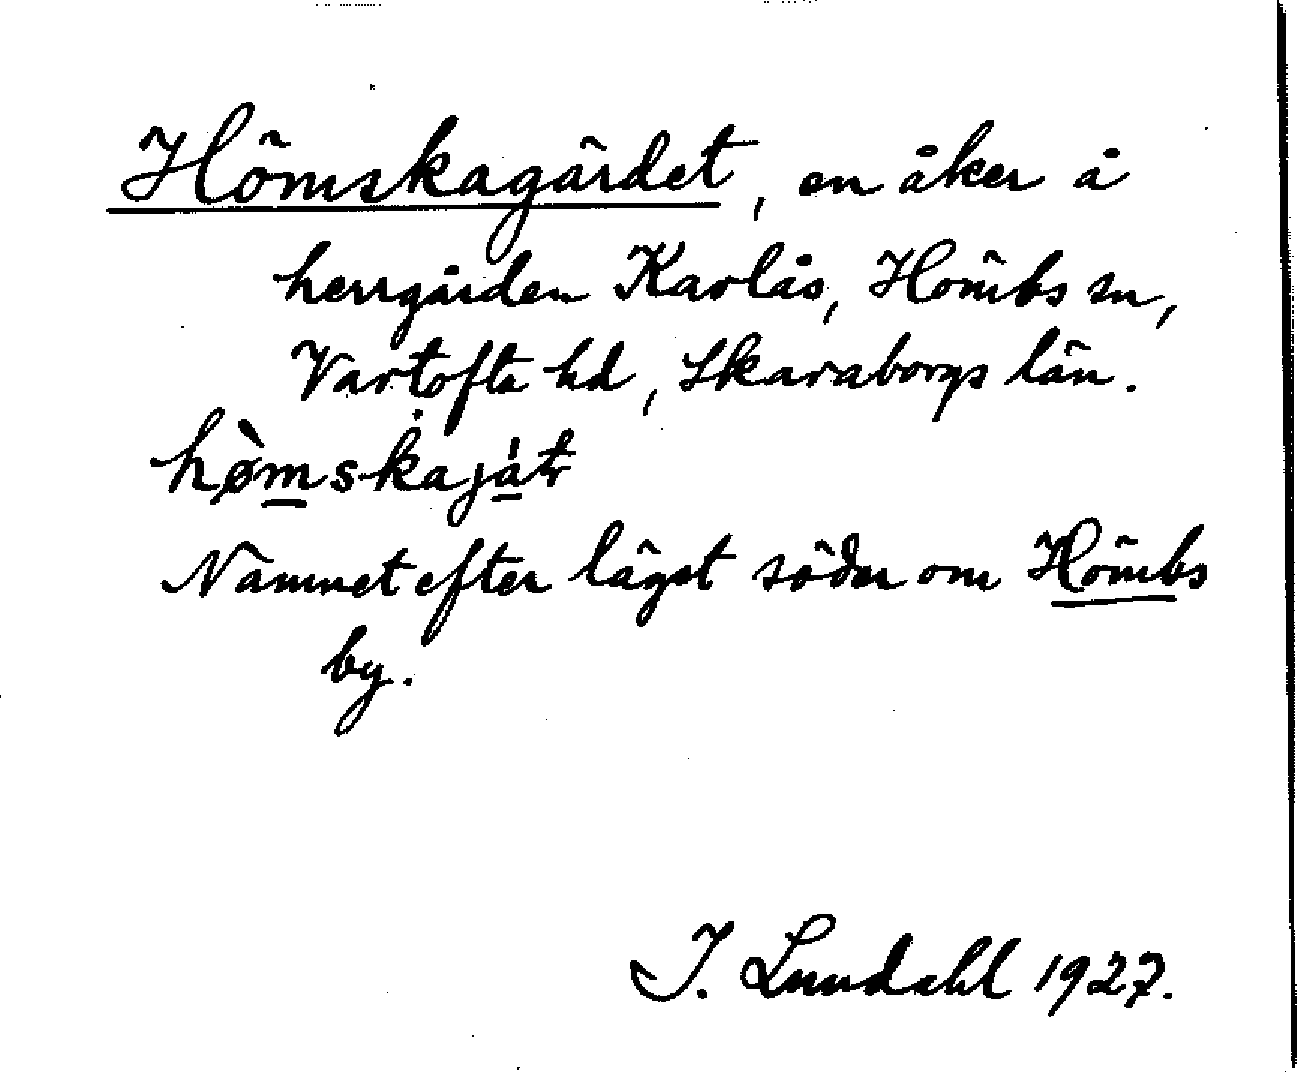 Hömskagärdet, en åker å
herrgården Karlås, Hömbs sn,
Vartofta hd, Skaraborgs län.
hø̀mskajátr
Namnet efter läget söder om Hömbs
by.
I. Lundahl 1927.